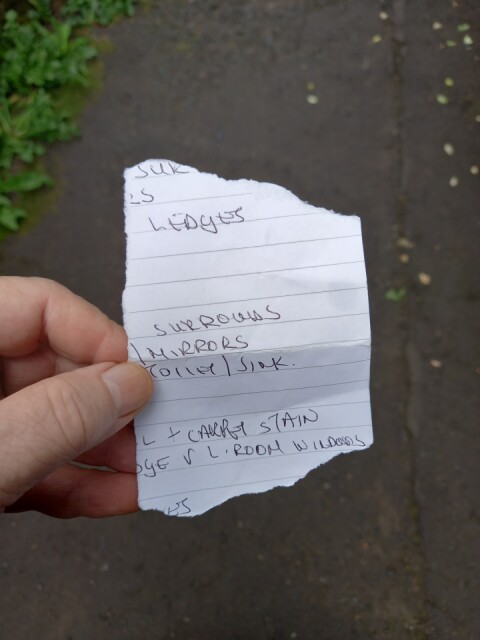 LEDGES
SURROUNDS
MIRRORS
TOILET / SINK.
L + CARPET STAIN
DGE & L.ROOM WINDOWS
ES